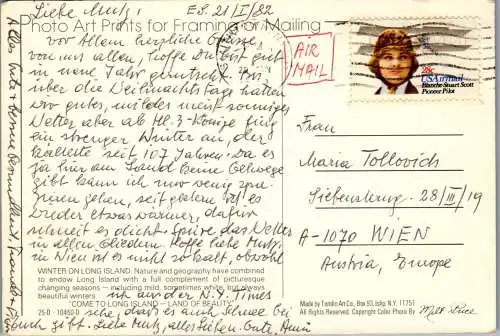 Liebe Mutz, E.S. 21/I/82
Photo Art Prints for Framing or Mailing
vor Allem herzliche Grüsse,
von uns allen, hoffe Du bist gut
in neue Jahr gerutscht. Bis
über die Weihnachts Tage hatten
wir gutes, mildes meist sonniges
Wetter aber ab Hl. 3-Könige fing
ein strenger Winter an, der
kälteste seit 107 Jahren. Da es
ja hier am Land keine Gehwege
gibt kann ich nur wenig spa-
zieren gehen, seit gestern ist es
wieder etwas wärmer, dafür
schneit es dicht. Spüre das Wetter
in allen Gliedern. Hoffe liebe Mutz,
in Wien ist es nicht so kalt, obwohl
WINTER ON LONG ISLAND. Nature and geography have combined
to endow Long Island with a full complement of picturesque
changing seasons — including mild, sometimes white, but always
beautiful winters.
ich aus der N.Y. Times
"COME TO LONG ISLAND — LAND OF BEAUTY"
25-D · 10450-D
sehe, dass es auch Schnee bei
Euch gibt. Liebe Mutz, alles Liebe
AIR
MAIL
28c
USAirmail
Blanche Stuart Scott
Pioneer Pilot
Frau
Maria Tollovich
Siebensterng. 28/III/19
A-1070 WIEN
Austria, Europe
Made by Tomlin Art Co., Box 93, Islip, N.Y. 11751
All Rights Reserved. Copyright Color Photo By Milt Price